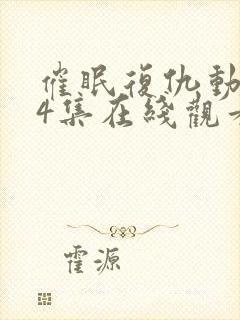 催眠復仇動
4集在綫觀
霍源